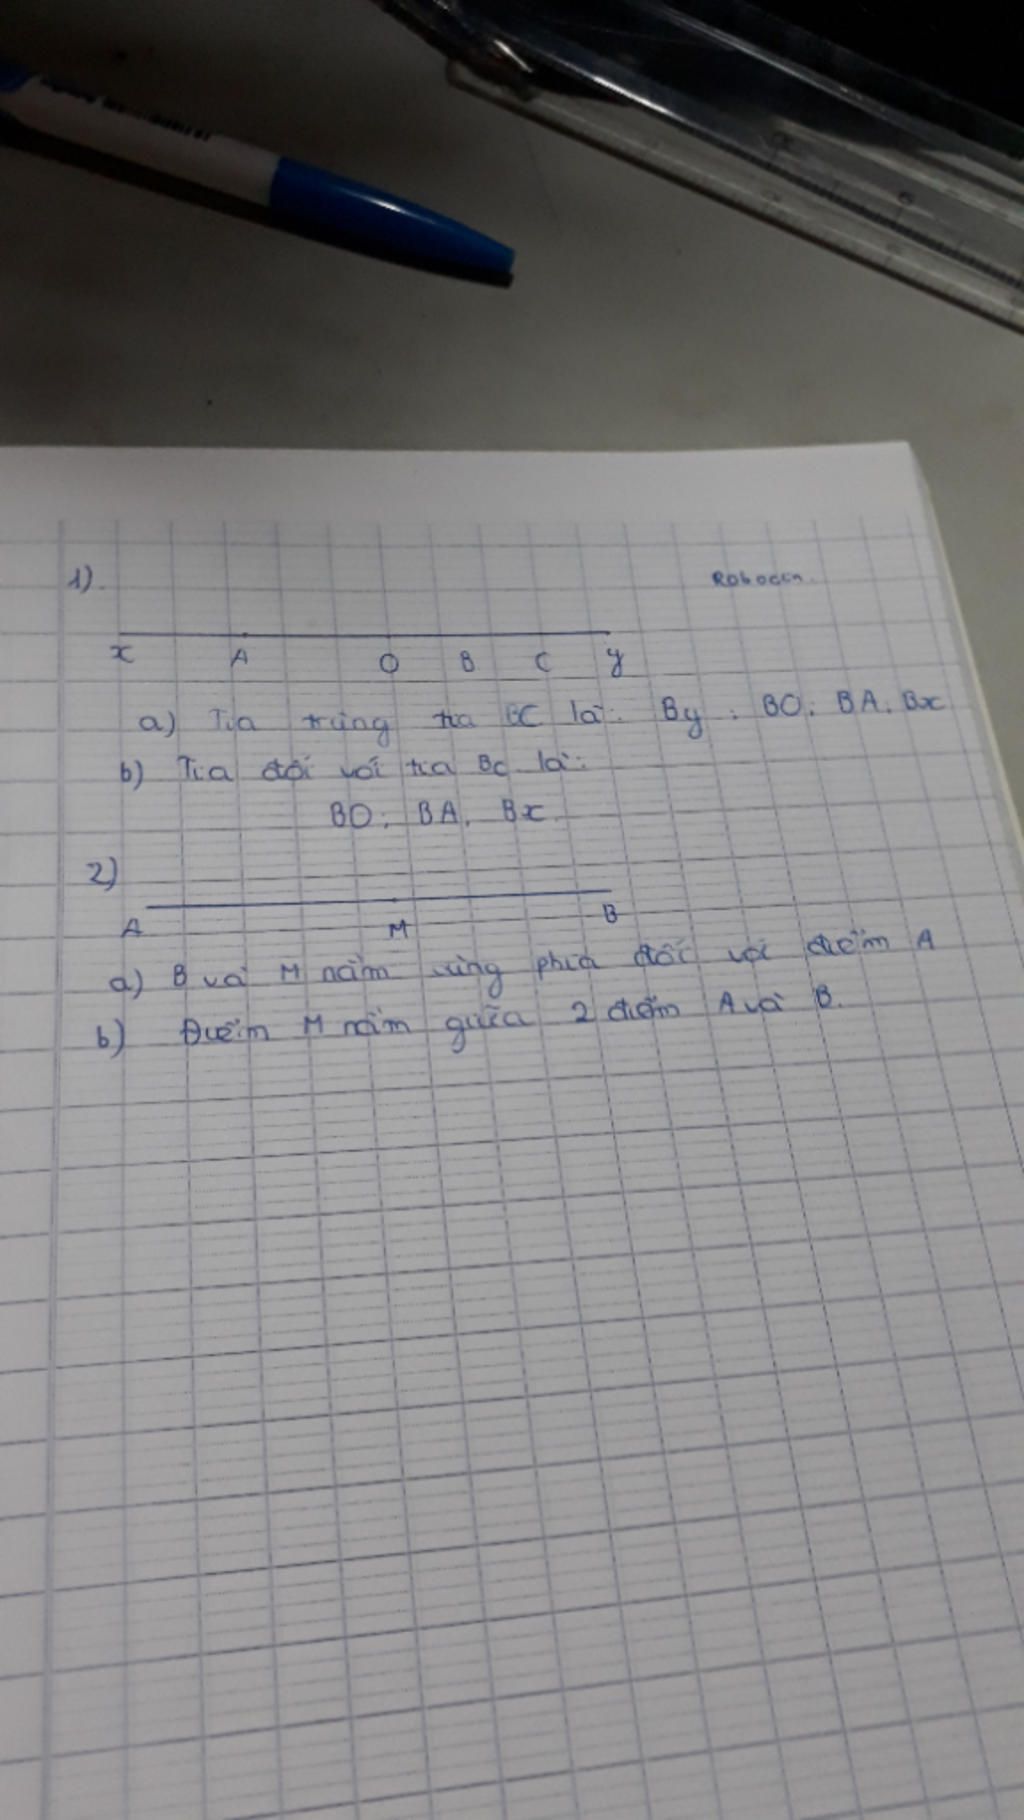 1).
Robocon.
x A O B C y
a) Tia trùng tia BC là: By ; BO; BA, Bx
b) Tia đối với tia BC là:
BO; BA, Bx
2)
A M B
a) B và M nằm cùng phía đối với điểm A
b) Điểm M nằm giữa 2 điểm A và B.